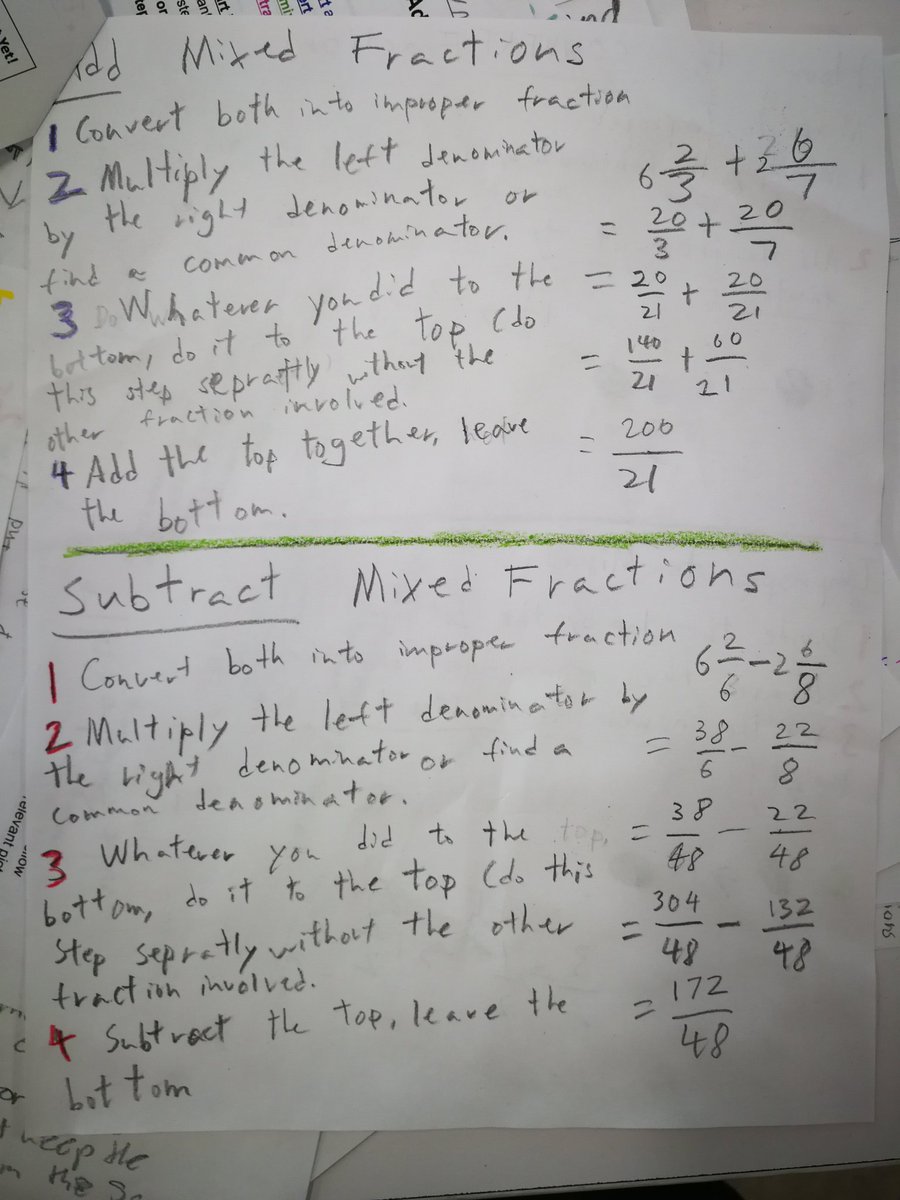 Add Mixed Fractions
1 Convert both into improper fraction
2 Multiply the left denominator
by the right denominator or
find a common denominator.
3 Whatever you did to the
bottom, do it to the top (do
this step sepratly without the
other fraction involved.
4 Add the top together, leave
the bottom.
6 2/3 + 2 6/7
= 20/3 + 20/7
= 20/21 + 20/21
= 140/21 + 60/21
= 200/21
Subtract Mixed Fractions
1 Convert both into improper fraction
2 Multiply the left denominator by
the right denominator or find a
common denominator.
3 Whatever you did to the top,
bottom, do it to the top (do this
step sepratly without the other
fraction involved.
4 Subtract the top, leave the
bottom
6 2/6 - 2 6/8
= 38/6 - 22/8
= 38/48 - 22/48
= 304/48 - 132/48
= 172/48
Yet!
elevant
keep the